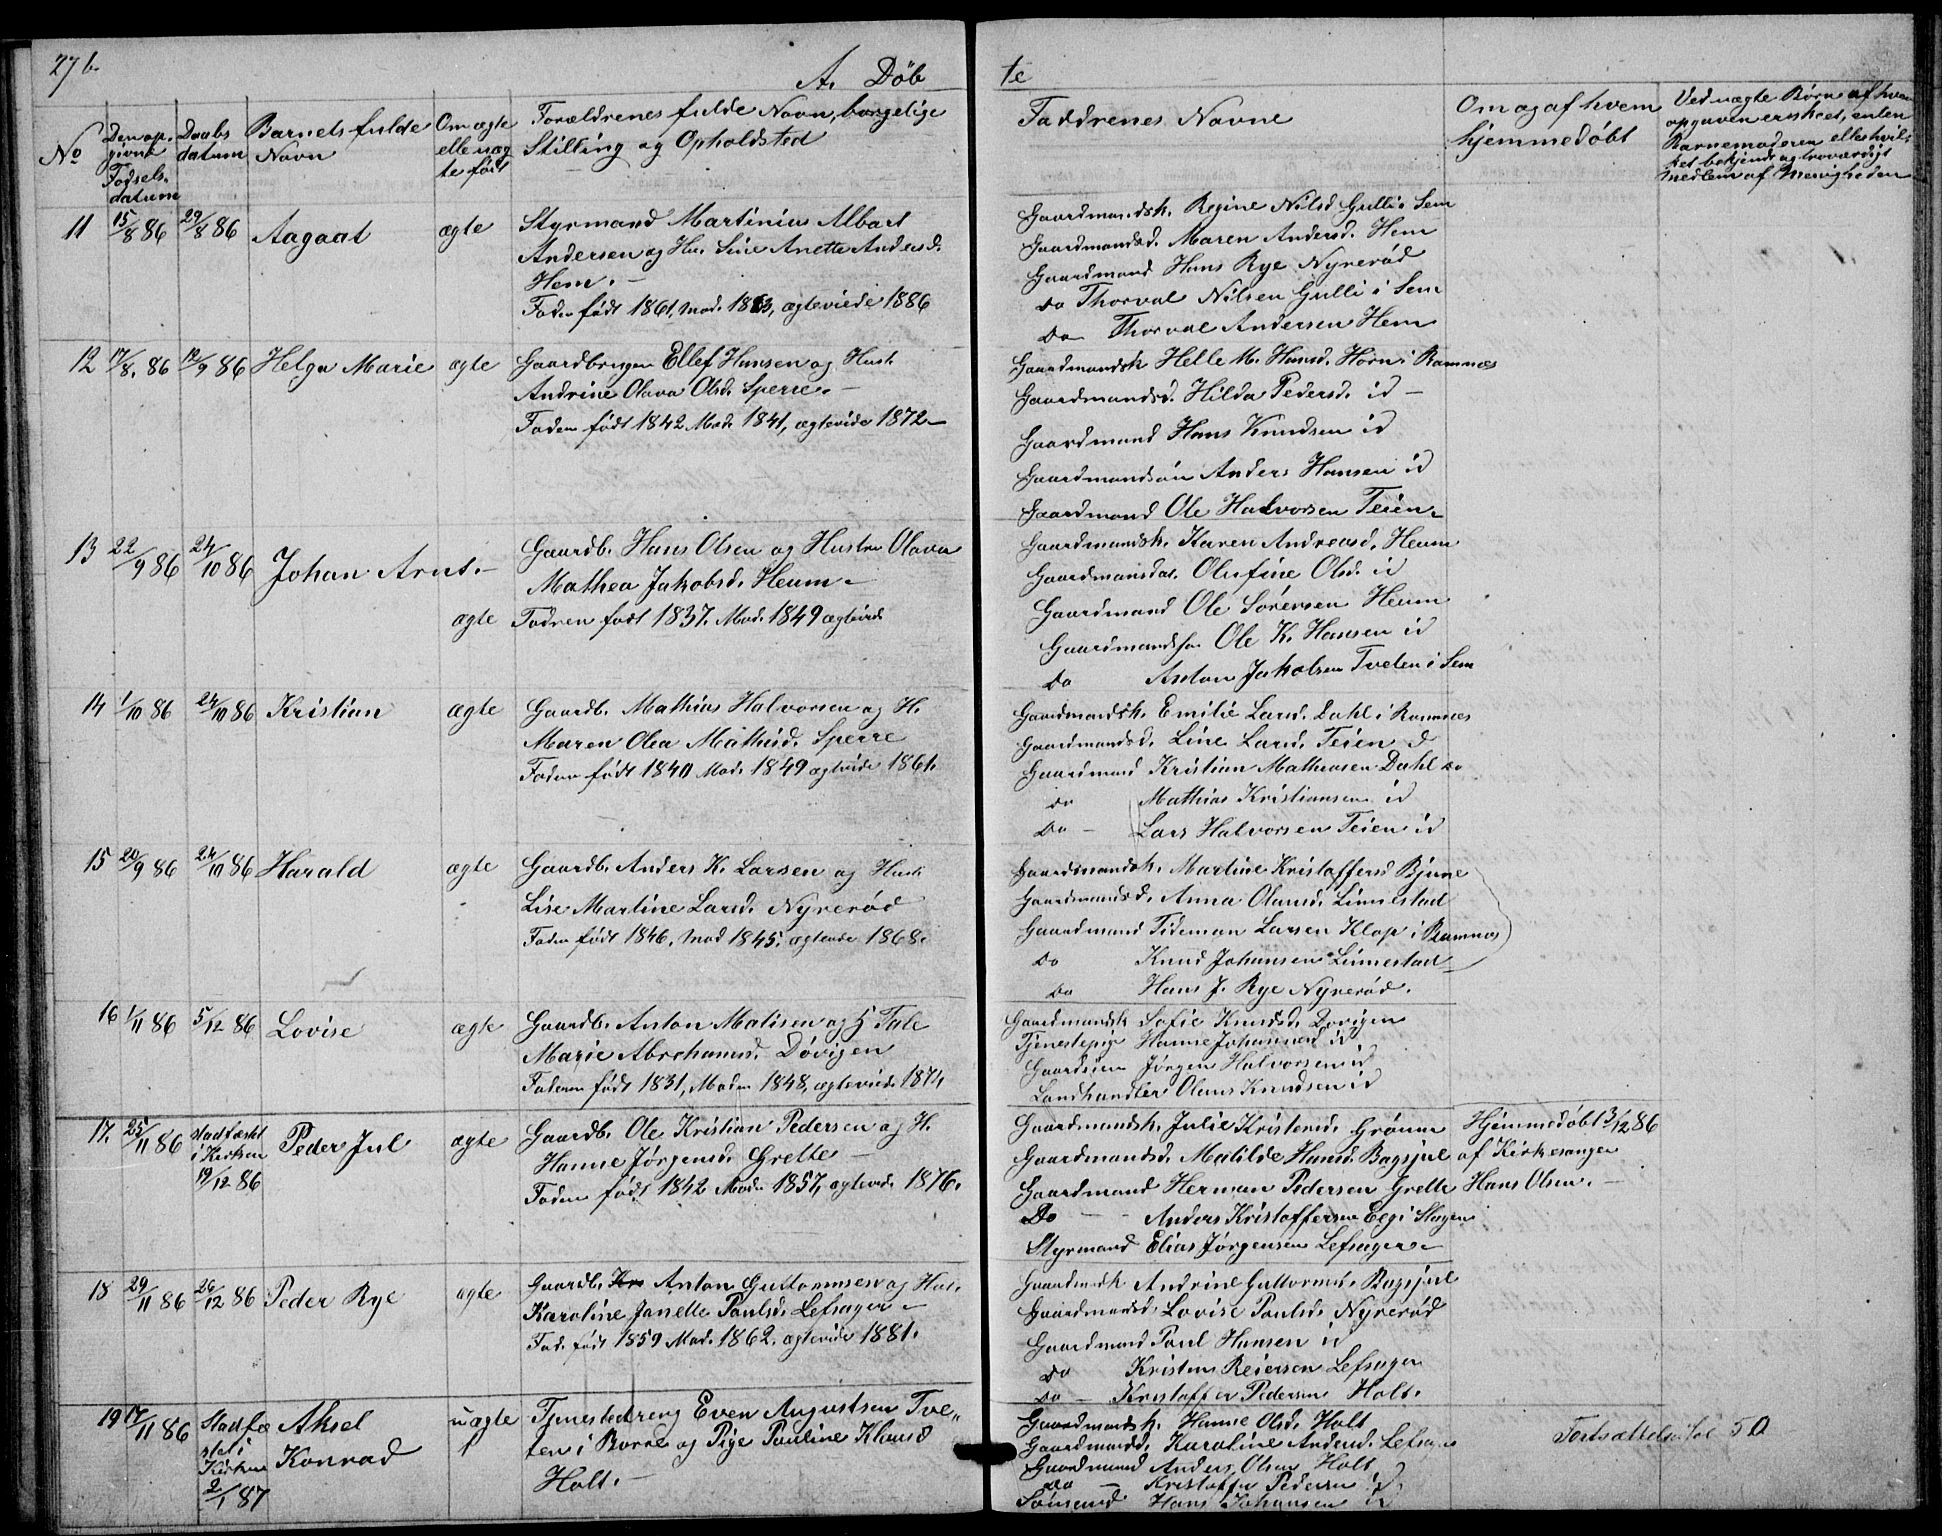 27b.
A. Døb
te
No
Den op-
givne
Fødsels-
datum
Daabs
datum
Barnets fulde
Navn
Om ægte
elle uæg
te født
Forældrenes fulde Navn, borgelige
Stilling og Opholdsted
Faddrenes Navne
Om og af hvem
hjemmedøbt
Ved uægte Børn af hvem
opgaven er skeet, enten
Barnemoderen eller hvil-
ket bekjendt og troværdigt
Medlem af Menigheden
11 15/8 86 29/8 86 Aagaat ægte
Styrmand Martinius Albart
Andersen og Hu. Line Anette Andersd.
Hem. -
Faden født 1861, Mod. 1863, ægteviede 1886
Gaardmandsk. Regine Nilsd Gulli i Sem
Gaardmandsd. Maren Andersd. Hem
Gaardmand Hans Rye Nyrerød
Do Thorval Nilsen Gulli i Sem
Do Thorval Andersen Hem
12 17/8. 86 12/9 86 Helga Marie ægte
Gaardbruger Ellef Hansen og Hust.
Andrine Olava Olsd. Sperre. -
Faden født 1842 Mod. 1841, ægteviede 1872 -
Gaardmandsk Helle M. Hansd. Horn i Ramnæs
Gaardmandsd. Hilda Pedersd. id -
Gaardmand Hans Knudsen id
Gaardmandsøn Anders Hansen id
Gaardmand Ole Halvorsen Teien -
13 22/9 86 24/10 86 Johan Arnt. -
ægte
Gaardb. Hans Olsen og Hustru Olava
Mathea Jakobsd. Heum -
Fadren født 1837. Mod. 1849 ægteviede
Gaardmandsk. Karen Andreasd. Heum
Gaardmansdat. Olufine Olsd. id
Gaardmand Ole Sørensen Heum
Gaardmandsøn Ole K. Hansen id
Do Anton Jakobsen Tveten i Sem
14 1/10 86 24/10 86 Kristian ægte
Gaardb. Mathias Halvorsen og H.
Maren Olea Mathisd. Sperre
Faden født 1840 Mod. 1849 ægteviede 1861.
Gaardmandsk. Emilie Larsd. Dahl i Ramnæs
Gaardmandsd. Line Larsd. Teien d
Gaardmand Kristian Mathiasen Dahl do
do Mathias Kristiansen id
Do - Lars Halvorsen Teien id
15 20/9 86 24/10 86 Harald ægte
Gaardb. Anders K. Larsen og Hust.
Lise Martine Larsd. Nyrerød
Faden født 1846, Mod 1845. ægteviede 1868.
Gaardmandsk. Martine Kristoffersd Bjune
Gaardmandsd. Anna Olausd. Linnestad
Gaardmand Tideman Larsen Klop i Ramnæs
Do Knud Johansen Linnestad
Do Hans J. Rye Nyrerød.
16 1/11 86 5/12 86 Lovise ægte
Gaardb. Anton Matisen og H Tale
Marie Abrahamsd. Døvigen
Faderen født 1831, Moden 1848, ægteviede 1874
Gaardmandsk Sofie Knudsd. Dovigen
Tjenestepige Hanne Johannesd id
Gaardeier Jørgen Halvorsen id
Landhandler Olaus Knudsen id
17. 25/11 86 stadfæstet
i Kirken
19/12 86
Peder Jul ægte
Gaardb. Ole Kristian Pedersen og H.
Hanne Jørgensd. Grette -
Faden født 1842 Mod. 1857, ægteviede 1876.
Gaardmandsk. Julie Kristensd. Grønnu
Gaardmandsd. Matilde Hansd. Bagsjul
Gaardmand Herman Pedersen Grette
Do - - Anders Kristoffersen Eeg i Slagen
Styrmand Elias Jørgensen Lefsager -
Hjemmedøbt 3/12 86
af Kirkesanger
Hans Olsen. -
18 29/11 86 26/12 86 Peder Rye ægte
Gaardb. Anton Guttormsen og Hust.
Karoline Janette Paulsd. Lefsager -
Fad. født 1859 Mod. 1862. ægteviede 1881.
Gaardmdk Andrine Guttormsd. Bagsjul
Gaardmandsd. Lovise Paulsd. Nyrerød
Gaardmand Paul Hansen id
Do Kristen Reiersen Lefsager
Do - Kristoffer Pedersen Holt.
19 17/11 86 Stadfæ
stet i
Kirken
2/1 87
Aksel
Konrad
uægte
Tjenestedreng Even Augustsen Tve-
ten i Borre og Pige Pauline Klausd
Holt. -
Gaardmandsk. Hanne Olsd. Holt
Gaardmandsd. Karoline Andersd. Lefsager
Gaardmand Anders Olsen Holt
Do - Kristoffer Pedersen id
Sømand Hans Johansen id
Fortsættelse Fol 50